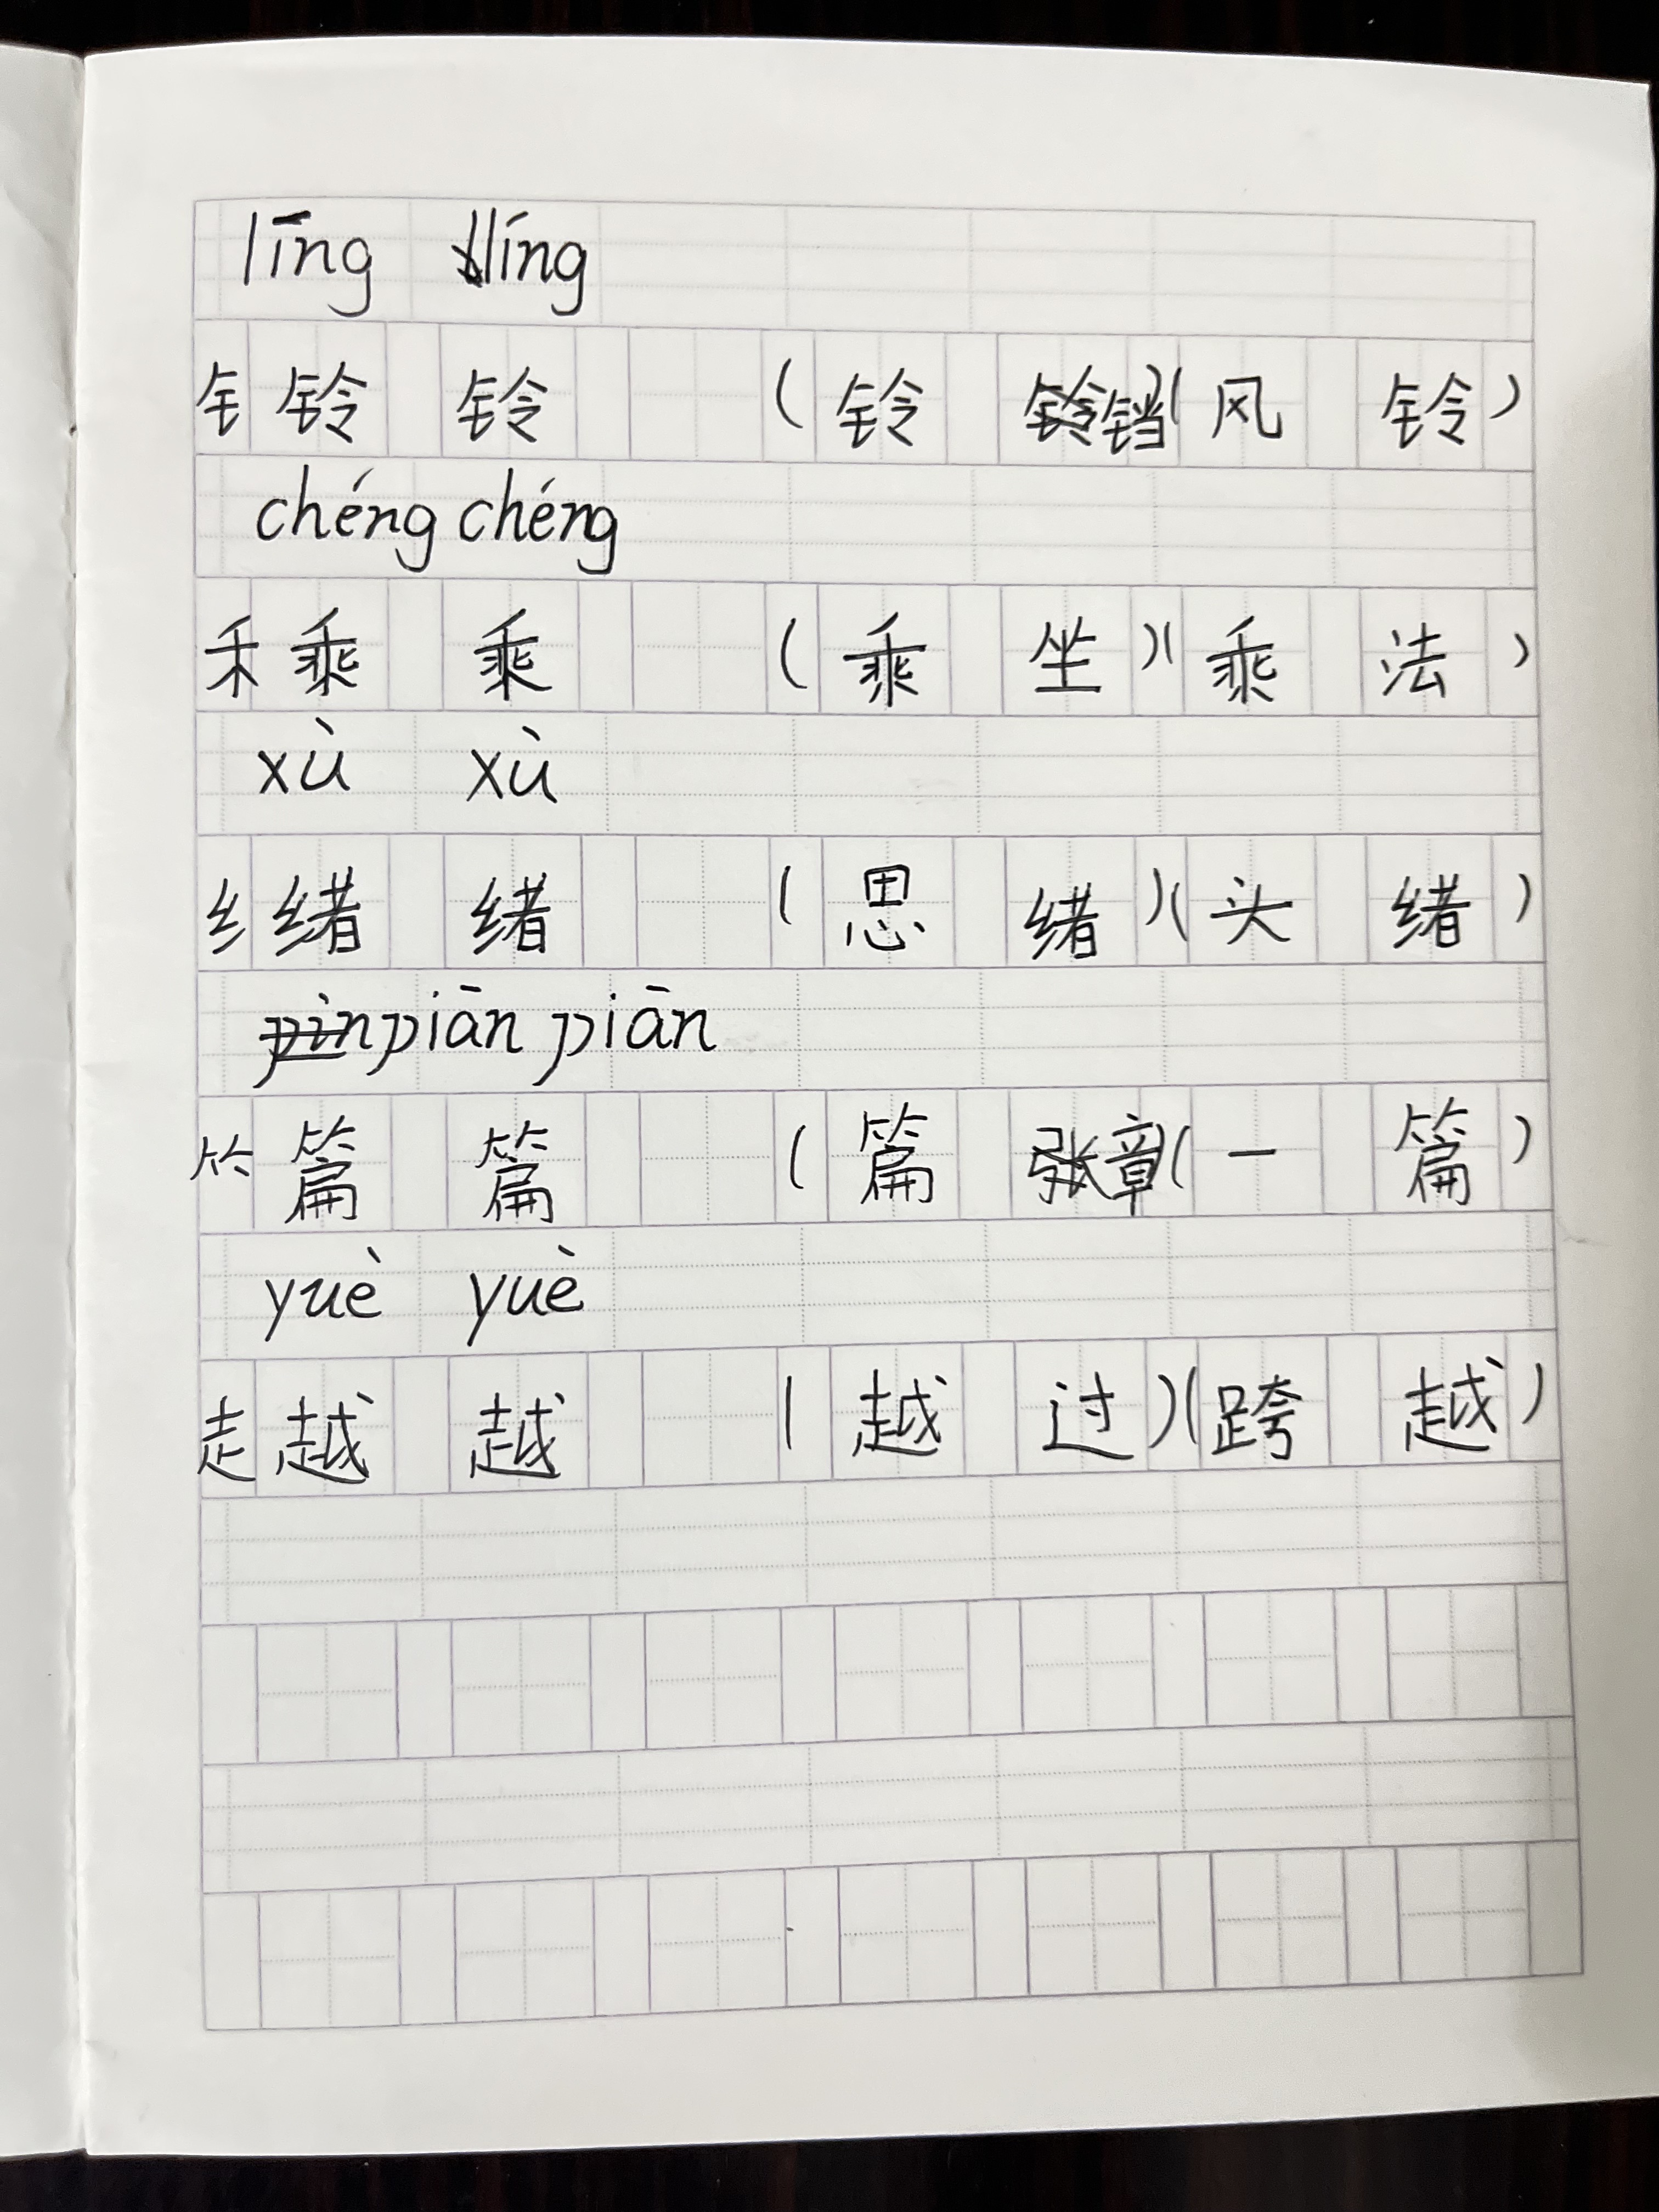 līng líng
钅 铃 铃 ( 铃 铛 ) ( 风 铃 )
chéng chéng
禾 乘 乘 ( 乘 坐 ) ( 乘 法 )
xù xù
纟 绪 绪 ( 思 绪 ) ( 头 绪 )
piān piān
⺮ 篇 篇 ( 篇 章 ) ( 一 篇 )
yuè yuè
走 越 越 ( 越 过 ) ( 跨 越 )